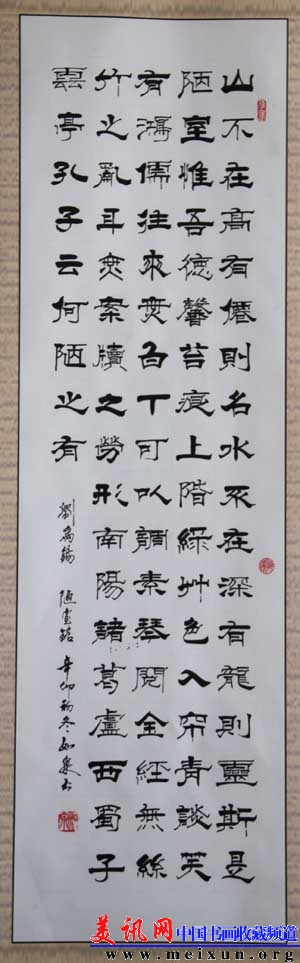 山不在高有僊則名水不在深有龍則靈斯是
陋室惟吾德馨苔痕上階綠艸色入帘青談笑
有鴻儒往來無白丁可以調素琴閱金經無絲
竹之亂耳無案牘之勞形南陽諸葛廬西蜀子
雲亭孔子云何陋之有
劉禹錫 陋室銘 辛卯初冬如泉书
美讯网 中国书画收藏频道
www.meixun.org